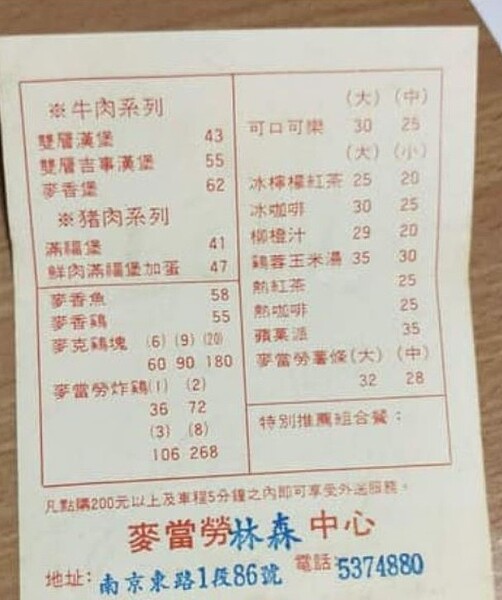 ※牛肉系列
雙層漢堡 43
雙層吉事漢堡 55
麥香堡 62
※猪肉系列
滿福堡 41
鮮肉滿福堡加蛋 47
麥香魚 58
麥香鷄 55
麥克鷄塊 (6) (9) (20)
60 90 180
麥當勞炸鷄(1) (2)
36 72
(3) (8)
106 268
(大) (中)
可口可樂 30 25
(大) (小)
冰檸檬紅茶 25 20
冰咖啡 30 25
柳橙汁 29 20
鷄蓉玉米湯 35 30
熱紅茶 25
熱咖啡 25
蘋菓派 35
麥當勞薯條(大) (中)
32 28
特別推薦組合餐：
凡點購200元以上及車程5分鐘之內即可享受外送服務。
麥當勞林森中心
地址:南京東路1段86號 電話:5374880